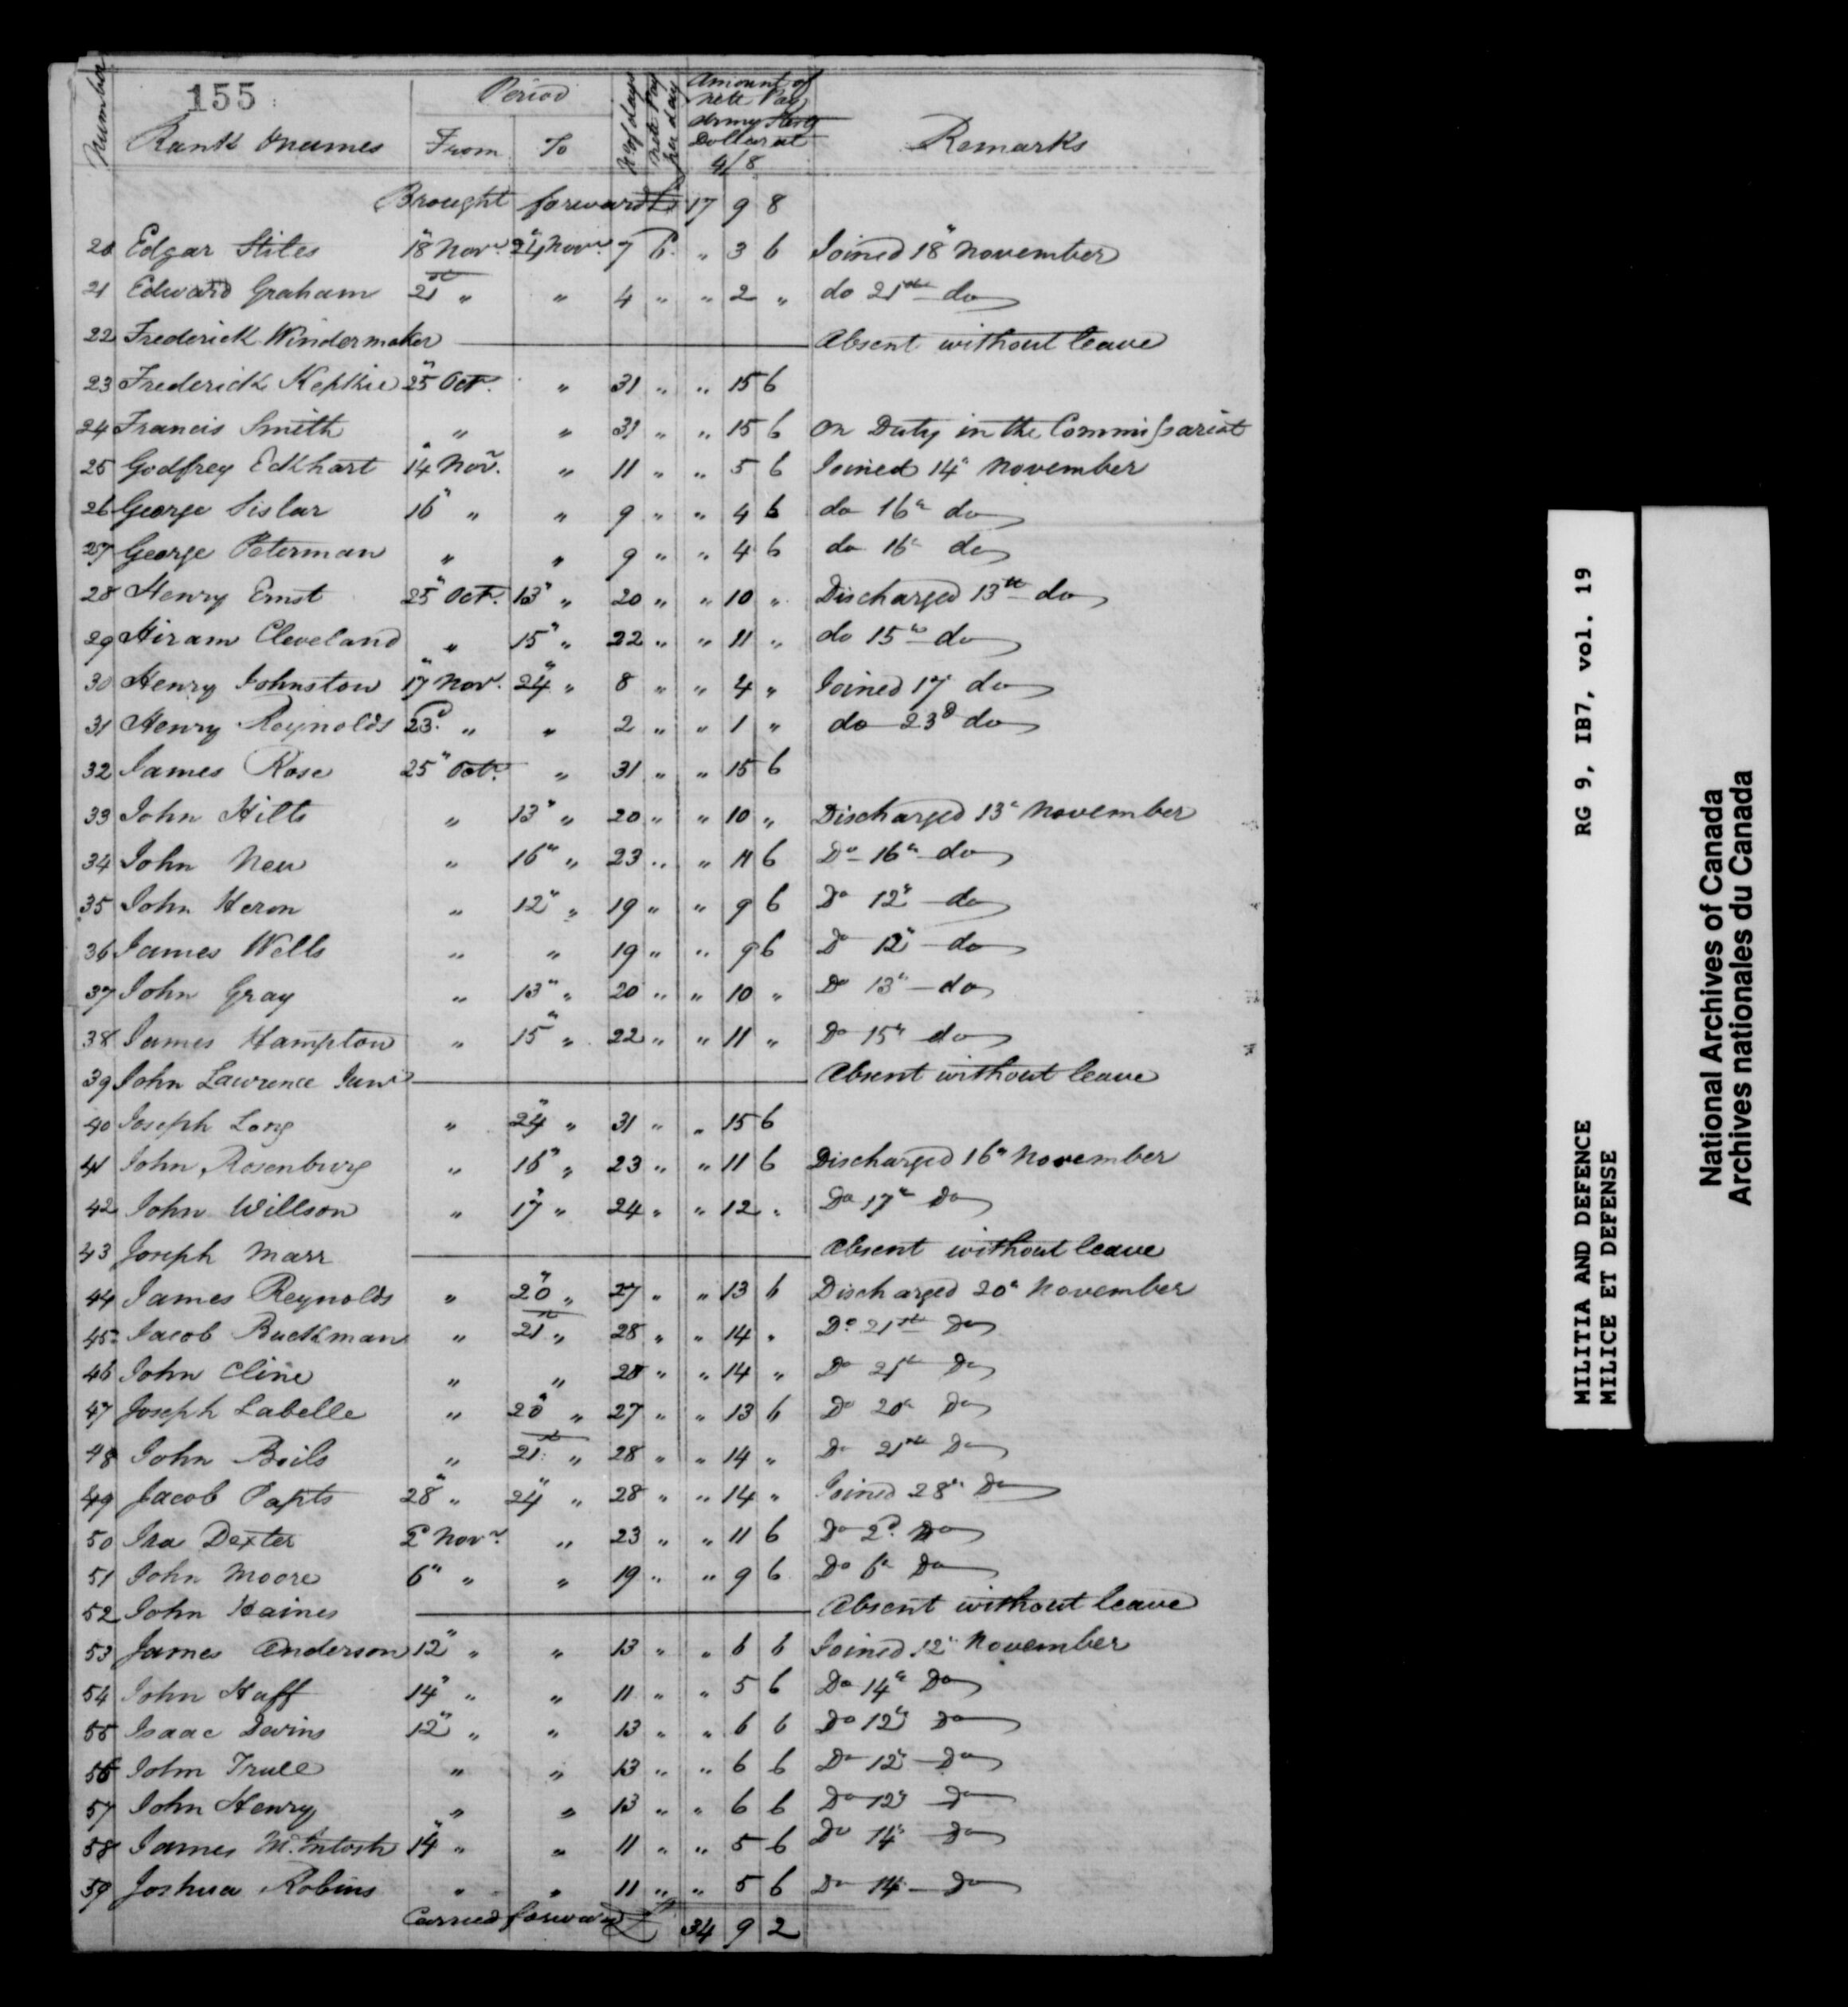 155
Number
Rank & names
Period
From
To
No of days
nett Pay per day
Amount of
nett Pay
Army Sterg
Dollar at
4/8
Remarks
Brought forward £ 17 9 8
20 Edgar Stiles 18" Novr. 24" Novr. 7 6. " 3 6 Joined 18" November
21 Edward Graham 21st " " 4 " " 2 " do 21st do
22 Frederick Windermaker Absent without leave
23 Frederick Kephie 25" Oct. " 31 " " 15 6
24 Francis Smith " " 31 " " 15 6 On Duty in the Commissariat
25 Godfrey Eckhart 14" Novr. " 11 " " 5 6 Joined 14" November
26 George Sislar 16" " " 9 " " 4 6 do 16" do
27 George Peterman " " 9 " " 4 6 do 16" do
28 Henry Ernst 25" Oct. 13" " 20 " " 10 " Discharged 13th do
29 Hiram Cleveland " 15" " 22 " " 11 " do 15th do
30 Henry Johnston 17" Nov. 24" " 8 " " 4 " Joined 17" do
31 Henry Reynolds 23d. " " 2 " " 1 " do 23d do
32 James Rose 25" Oct. " 31 " " 15 6
33 John Hilts " 13" " 20 " " 10 " Discharged 13" November
34 John New " 16" " 23 " " 11 6 Do 16" do
35 John Heron " 12" " 19 " " 9 6 Do 12" do
36 James Wells " " 19 " " 9 6 Do 12" do
37 John Gray " 13" " 20 " " 10 " Do 13" do
38 James Hampton " 15" " 22 " " 11 " Do 15" do
39 John Lawrence Junr Absent without leave
40 Joseph Long " 24" " 31 " " 15 6
41 John Rosenburg " 16" " 23 " " 11 6 Discharged 16" November
42 John Willson " 17" " 24 " " 12 " Do 17" Do
43 Joseph Marr Absent without leave
44 James Reynolds " 20" " 27 " " 13 6 Discharged 20" November
45 Jacob Buckman " 21st " 28 " " 14 " Do 21st Do
46 John Cline " " 28 " " 14 " Do 21st Do
47 Joseph Labelle " 20" " 27 " " 13 6 Do 20" Do
48 John Boils " 21st " 28 " " 14 " Do 21st Do
49 Jacob Papts 28" " 24" " 28 " " 14 " Joined 28" Do
50 Ira Dexter 2d Novr. " 23 " " 11 6 Do 2d. Do
51 John Moore 6" " " 19 " " 9 6 Do 6" Do
52 John Haines Absent without leave
53 James Anderson 12" " " 13 " " 6 6 Joined 12" November
54 John Haff 14" " " 11 " " 5 6 Do 14" Do
55 Isaac Devins 12" " " 13 " " 6 6 Do 12" Do
56 John Trull " " 13 " " 6 6 Do 12" Do
57 John Henry " " 13 " " 6 6 Do 12" Do
58 James McIntosh 14" " " 11 " " 5 6 Do 14" Do
59 Joshua Robins " " 11 " " 5 6 Do 14" Do
Carried forward £ 34 9 2
MILITIA AND DEFENCE RG 9, IB7, vol. 19
MILICE ET DEFENSE
National Archives of Canada
Archives nationales du Canada